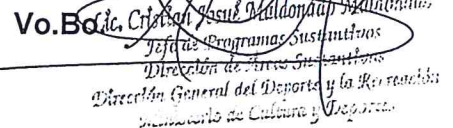 Vo.Bo. Lic. Cristian Josué Maldonado
Jefe de Programas Sustantivos
Dirección de Áreas Sustantivas
Dirección General del Deporte y la Recreación
Ministerio de Cultura y Deportes